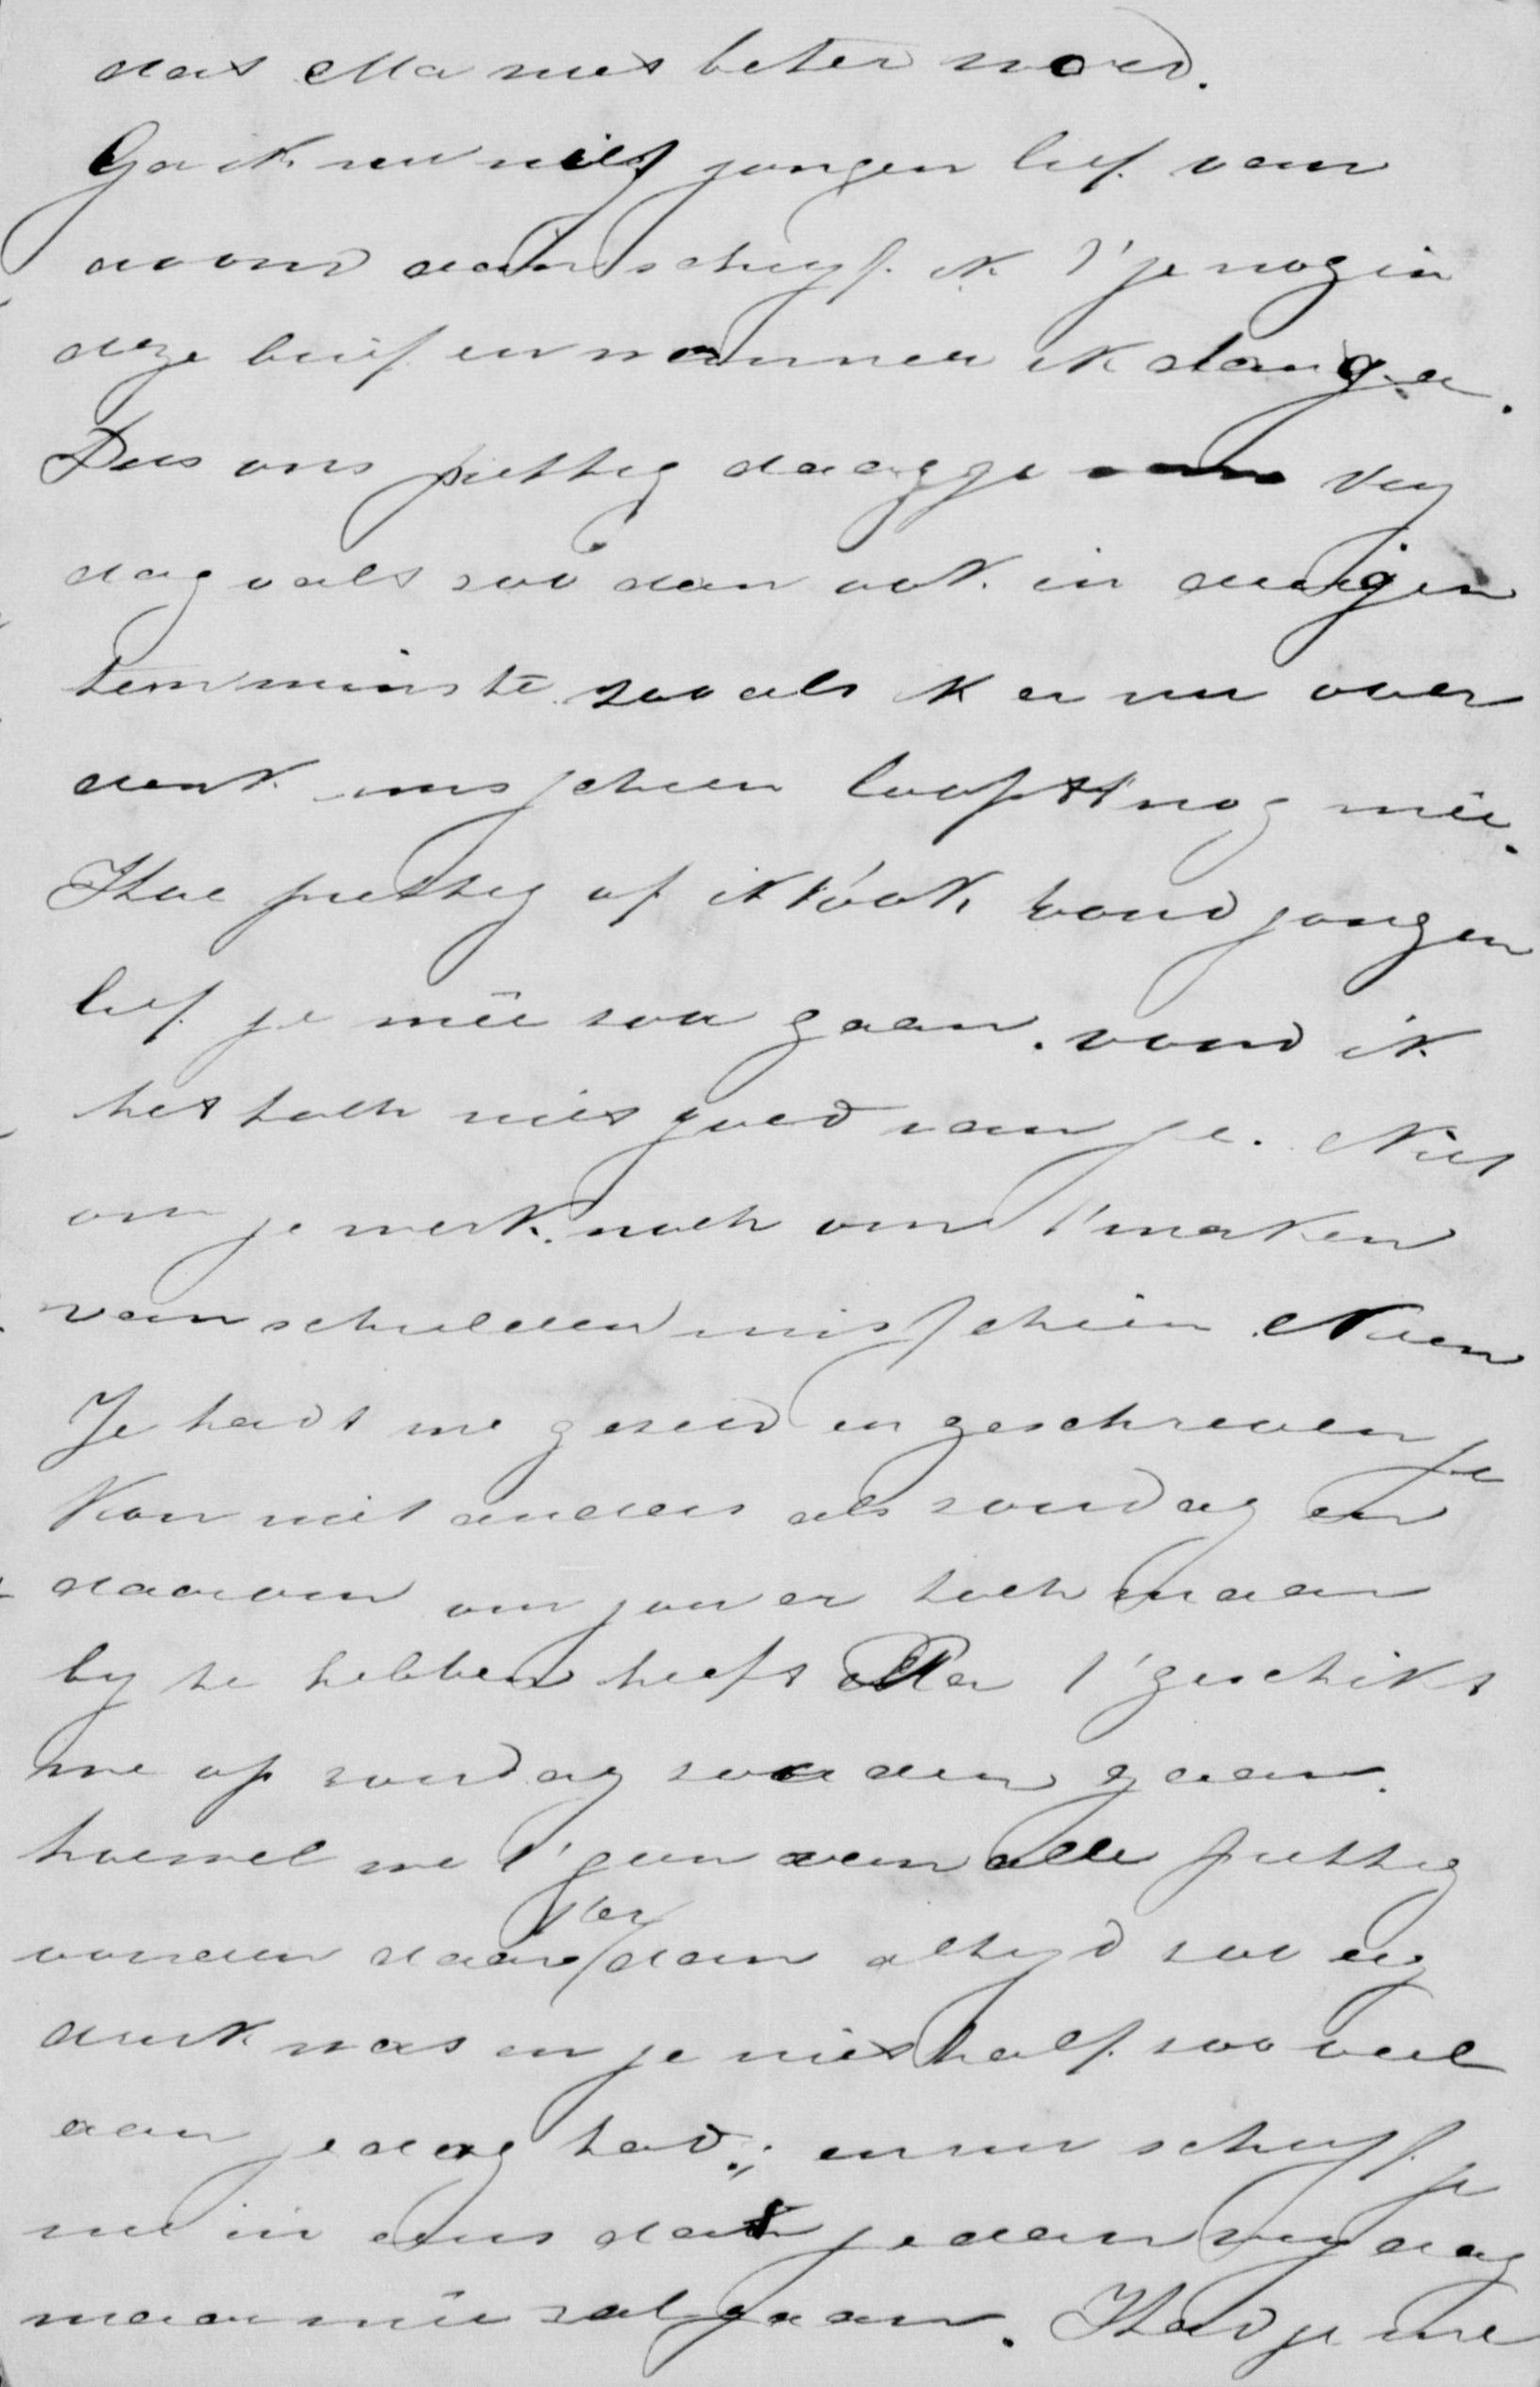 dat Ma niet beter word.
Ga ik nu niet jongen lief van
avond dan schryf ik 't je nog in
deze brief en wanneer ik dan ga.
Dus ons prettig daagje Vry
dag valt zoo dan ook in duigen
tenminste zooals ik er nu over
denk misschien loopt 't nog meê.
Hoe prettig of ik 't ook vond jongen
lief je meê zou gaan. vond ik
het toch niet goed van je. Niet
om je werk. noch om 't maken
van schulden misschien Neen
Je hadt me gezeid en geschreven je
kon niet anders als zondag en
daarom om jou er toch maar
by te hebben heeft Ma 't geschikt
we op zondag zouden gaan.
hoewel we 't geen van alle prettig
vonden daar 't er dan altyd zoo erg
druk was en je niet half zoo veel
aan je dag had; en nu schryf je
me in eens dat je dan vrydag
maar meê zal gaan. Had je me